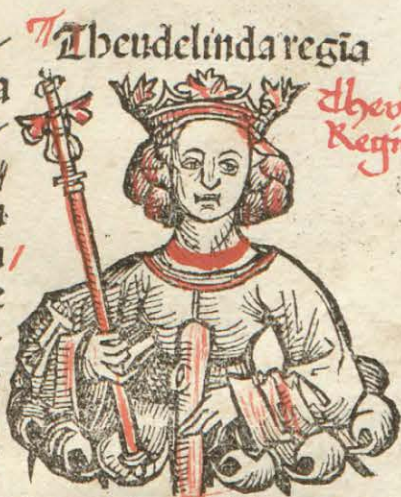 Theudelinda regīa
Theu
Regi